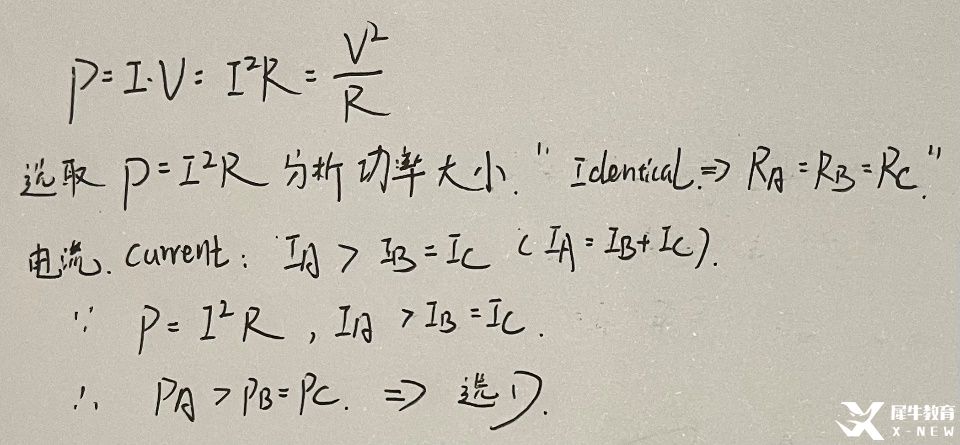 P=I·V=I²R=V²/R
选取 P=I²R 分析功率大小. "Identical.⇒ RA=RB=RC."
电流. current: IA > IB=IC (IA=IB+IC).
∵ P=I²R, IA >IB=IC.
∴ PA>PB=PC. ⇒ 选D.
犀牛教育
X-NEW